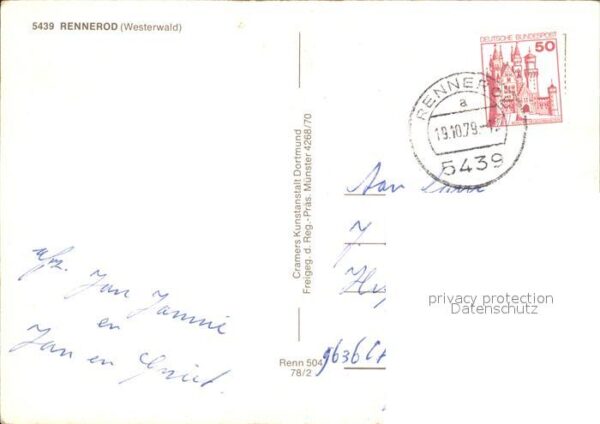 5439 RENNEROD (Westerwald)
DEUTSCHE BUNDESPOST
50
RENNEROD
a
19.10.79
5439
Cramers Kunstanstalt Dortmund
Freigeg. d. Reg.-Präs. Münster 4268/70
Aan
privacy protection
Datenschutz
afz. Jan Jannie
en
Jan en Griet.
Renn 504
78/2
9636